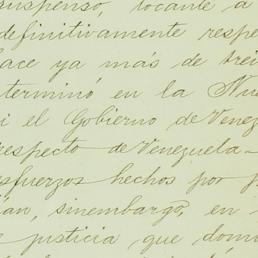 suspenso, tocante á
definitivamente respe
hace ya más de trei
terminó en la Nue
i el Gobierno de Venez
respecto de Venezuela
esfuerzos hechos por
ían, sinembargo, en
justicia que